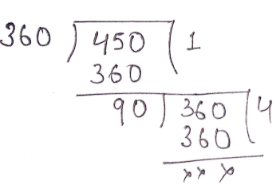 360 ) 450 ( 1
360
90 ) 360 ( 4
360
× × ×